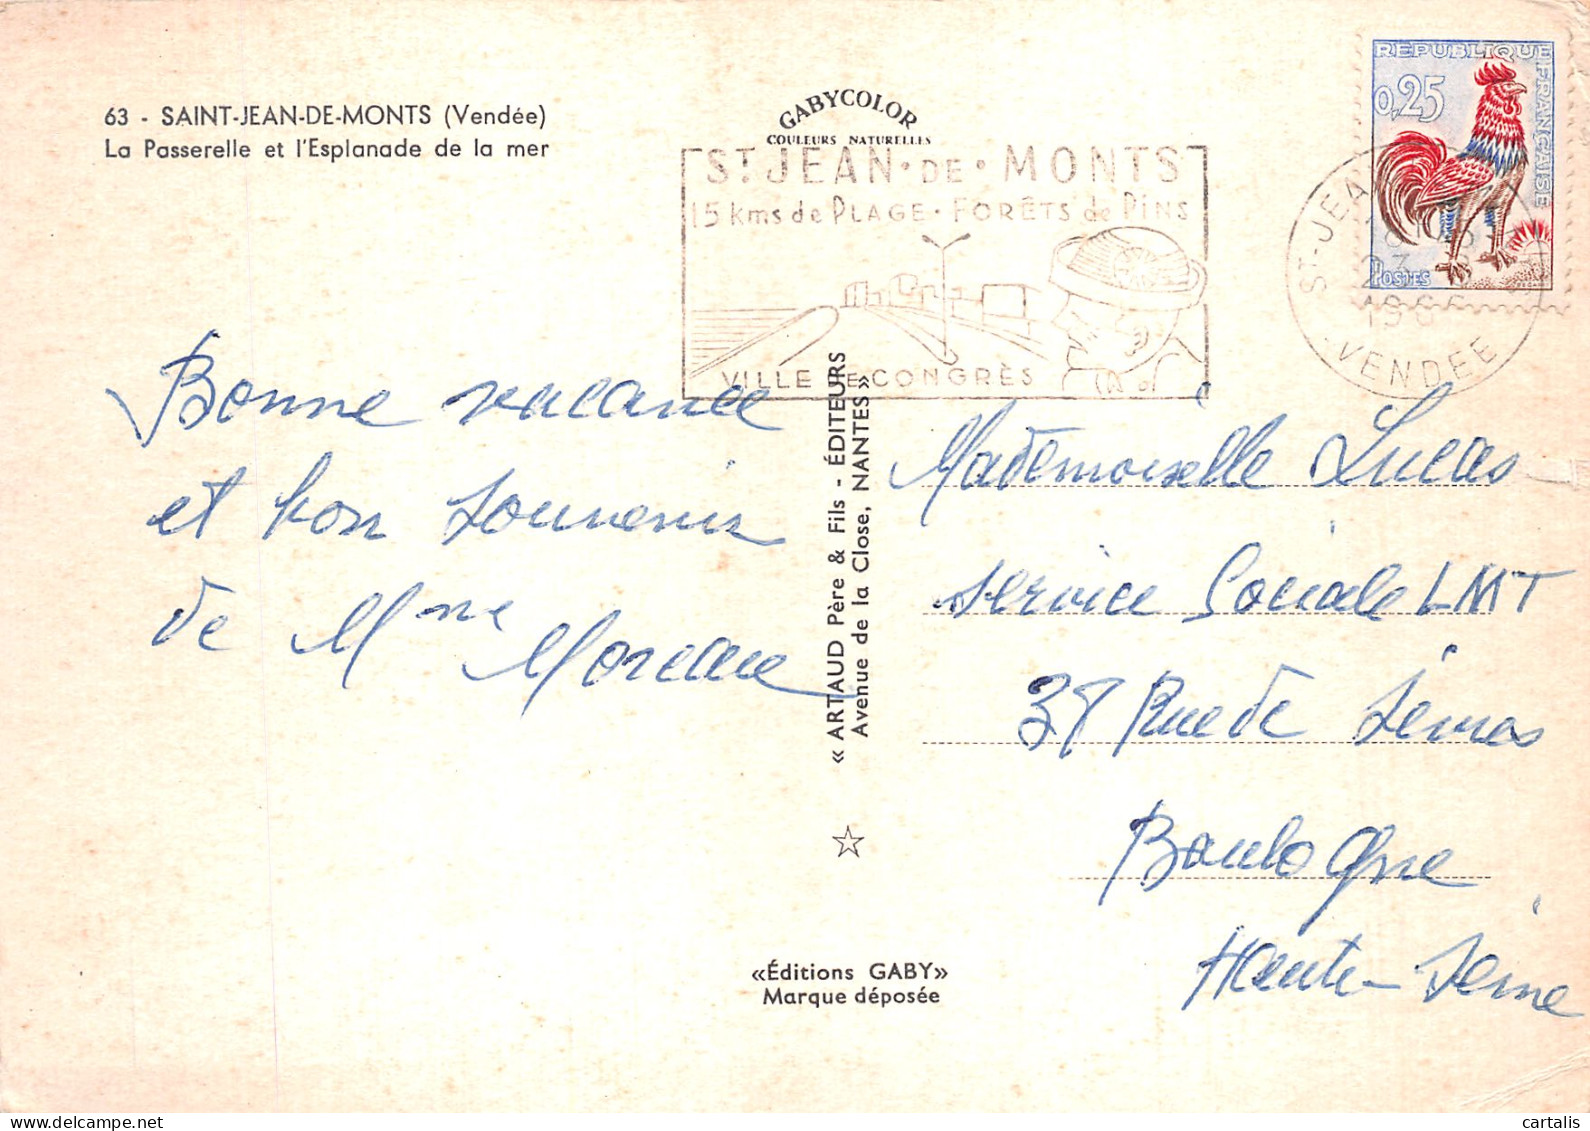 63 - SAINT-JEAN-DE-MONTS (Vendée)
La Passerelle et l'Esplanade de la mer
GABYCOLOR
COULEURS NATURELLES
ST JEAN·DE·MONTS
15 kms de PLAGE·FORÊTS de PINS
VILLE DE CONGRÈS
REPUBLIQUE FRANÇAISE
0,25
POSTES
ST-JEAN
1966
VENDEE
Bonne vacance
et bon souvenir
de Mme Moreau
« ARTAUD Père & Fils - ÉDITEURS
Avenue de la Close, NANTES »
Mademoiselle Lucas
service Sociale LMT
38 Rue de Sèvres
Boulogne
Haute-Seine
«Éditions GABY»
Marque déposée
cartalis
delcampe.net